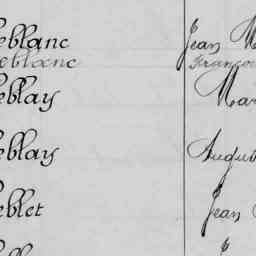 eblanc Jean M
eblanc Francoi
eblay Mar
eblay August
eblet Jean